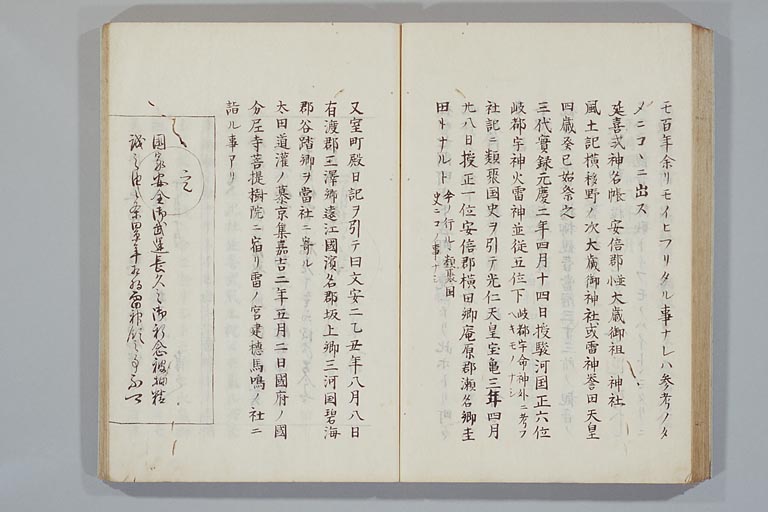 モ百年余リモイヒフリタル事ナレハ参考ノタ
メニコヽニ出ス
延喜式神名帳ニ安倍郡 大歳御祖ノ神社
風土記横校野 次大歳御神社或雷神誉田天皇
四歳癸巳始祭之
三代實録元慶二年四月十四日授駿河国正六位
岐都宇神火雷神並従五位下 岐都宇命神外ニ考フ
ヘキモノナシ
社記ニ類聚国史ヲ引テ光仁天皇宝亀三年四月
廿八日授正一位安倍郡横田郷庵原郡瀬名郷圭
田ナルト 今ノ行ルヽ類聚国
史コノ事ナシ
又室町殿日記ヲ引テ曰文安二乙丑年八月八日
有渡郡三澤郷遠江國濱名郡坂上郷三河国碧海
郡谷踏郷ヲ當社ニ寄ル
太田道灌ノ慕京集嘉吉二年五月二日國府ノ國
分尼寺菩提樹院ニ宿リ雷ノ宮建穂馬鳴ノ社ニ
詣ル事アリ
定
国家安全御武運長久之御祈念被抽精
誠之由